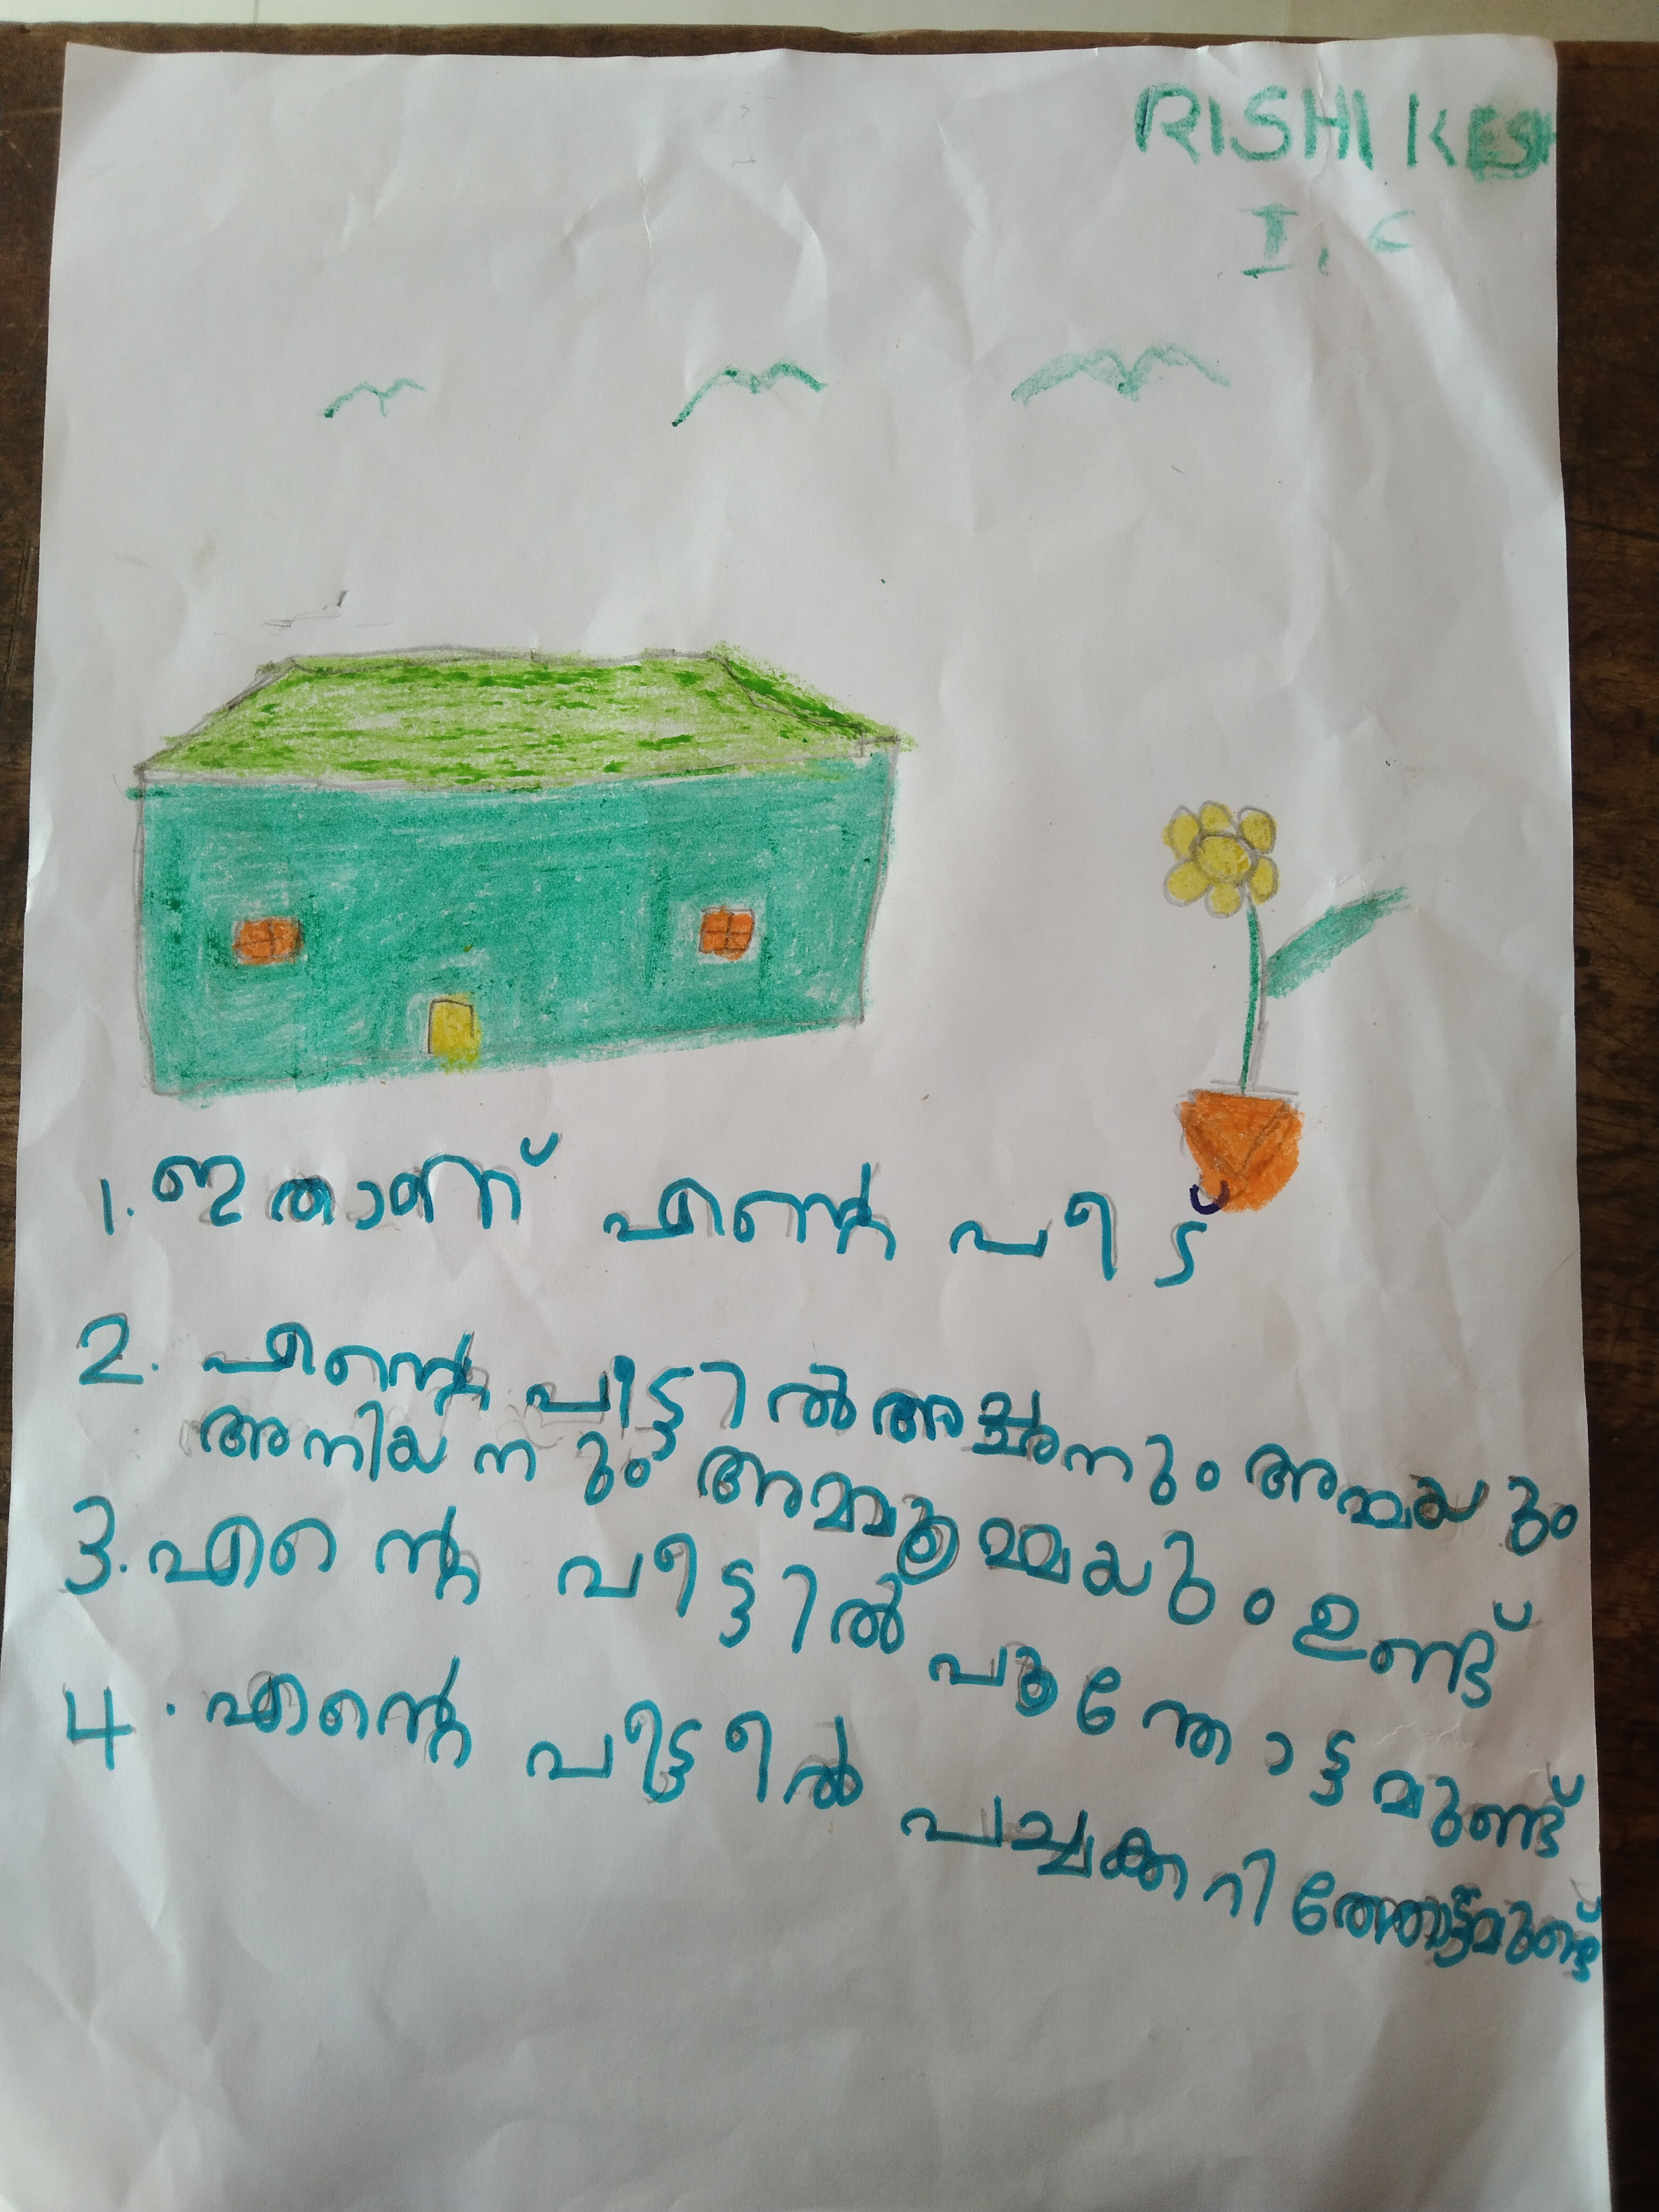 RISHIKESH
I, C
1. ഇതാണ് എൻ്റെ വീട്
2. എൻ്റെ വീട്ടിൽ അച്ഛനും അമ്മയും
അനിയനും അമ്മൂമ്മയും ഉണ്ട്
3. എൻ്റെ വീട്ടിൽ പൂന്തോട്ടമുണ്ട്
4. എൻ്റെ വീട്ടീൽ പച്ചക്കറിത്തോട്ടമുണ്ട്